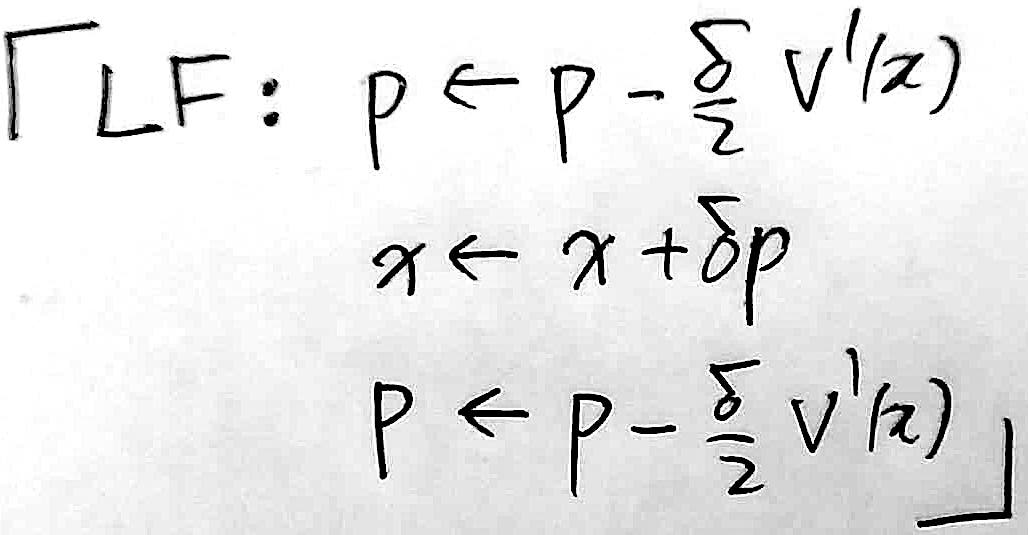 「LF: p ← p - δ/2 V'(x)
x ← x + δp
p ← p - δ/2 V'(x)」